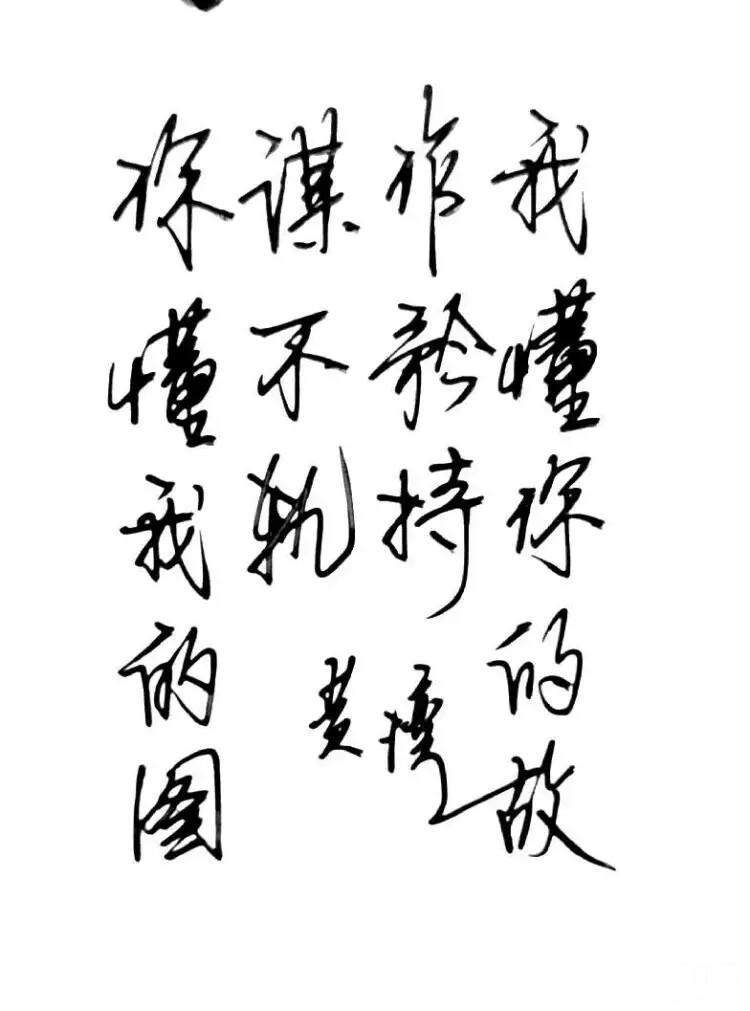 你懂我的图
谋不轨
我懂你的故
作矜持